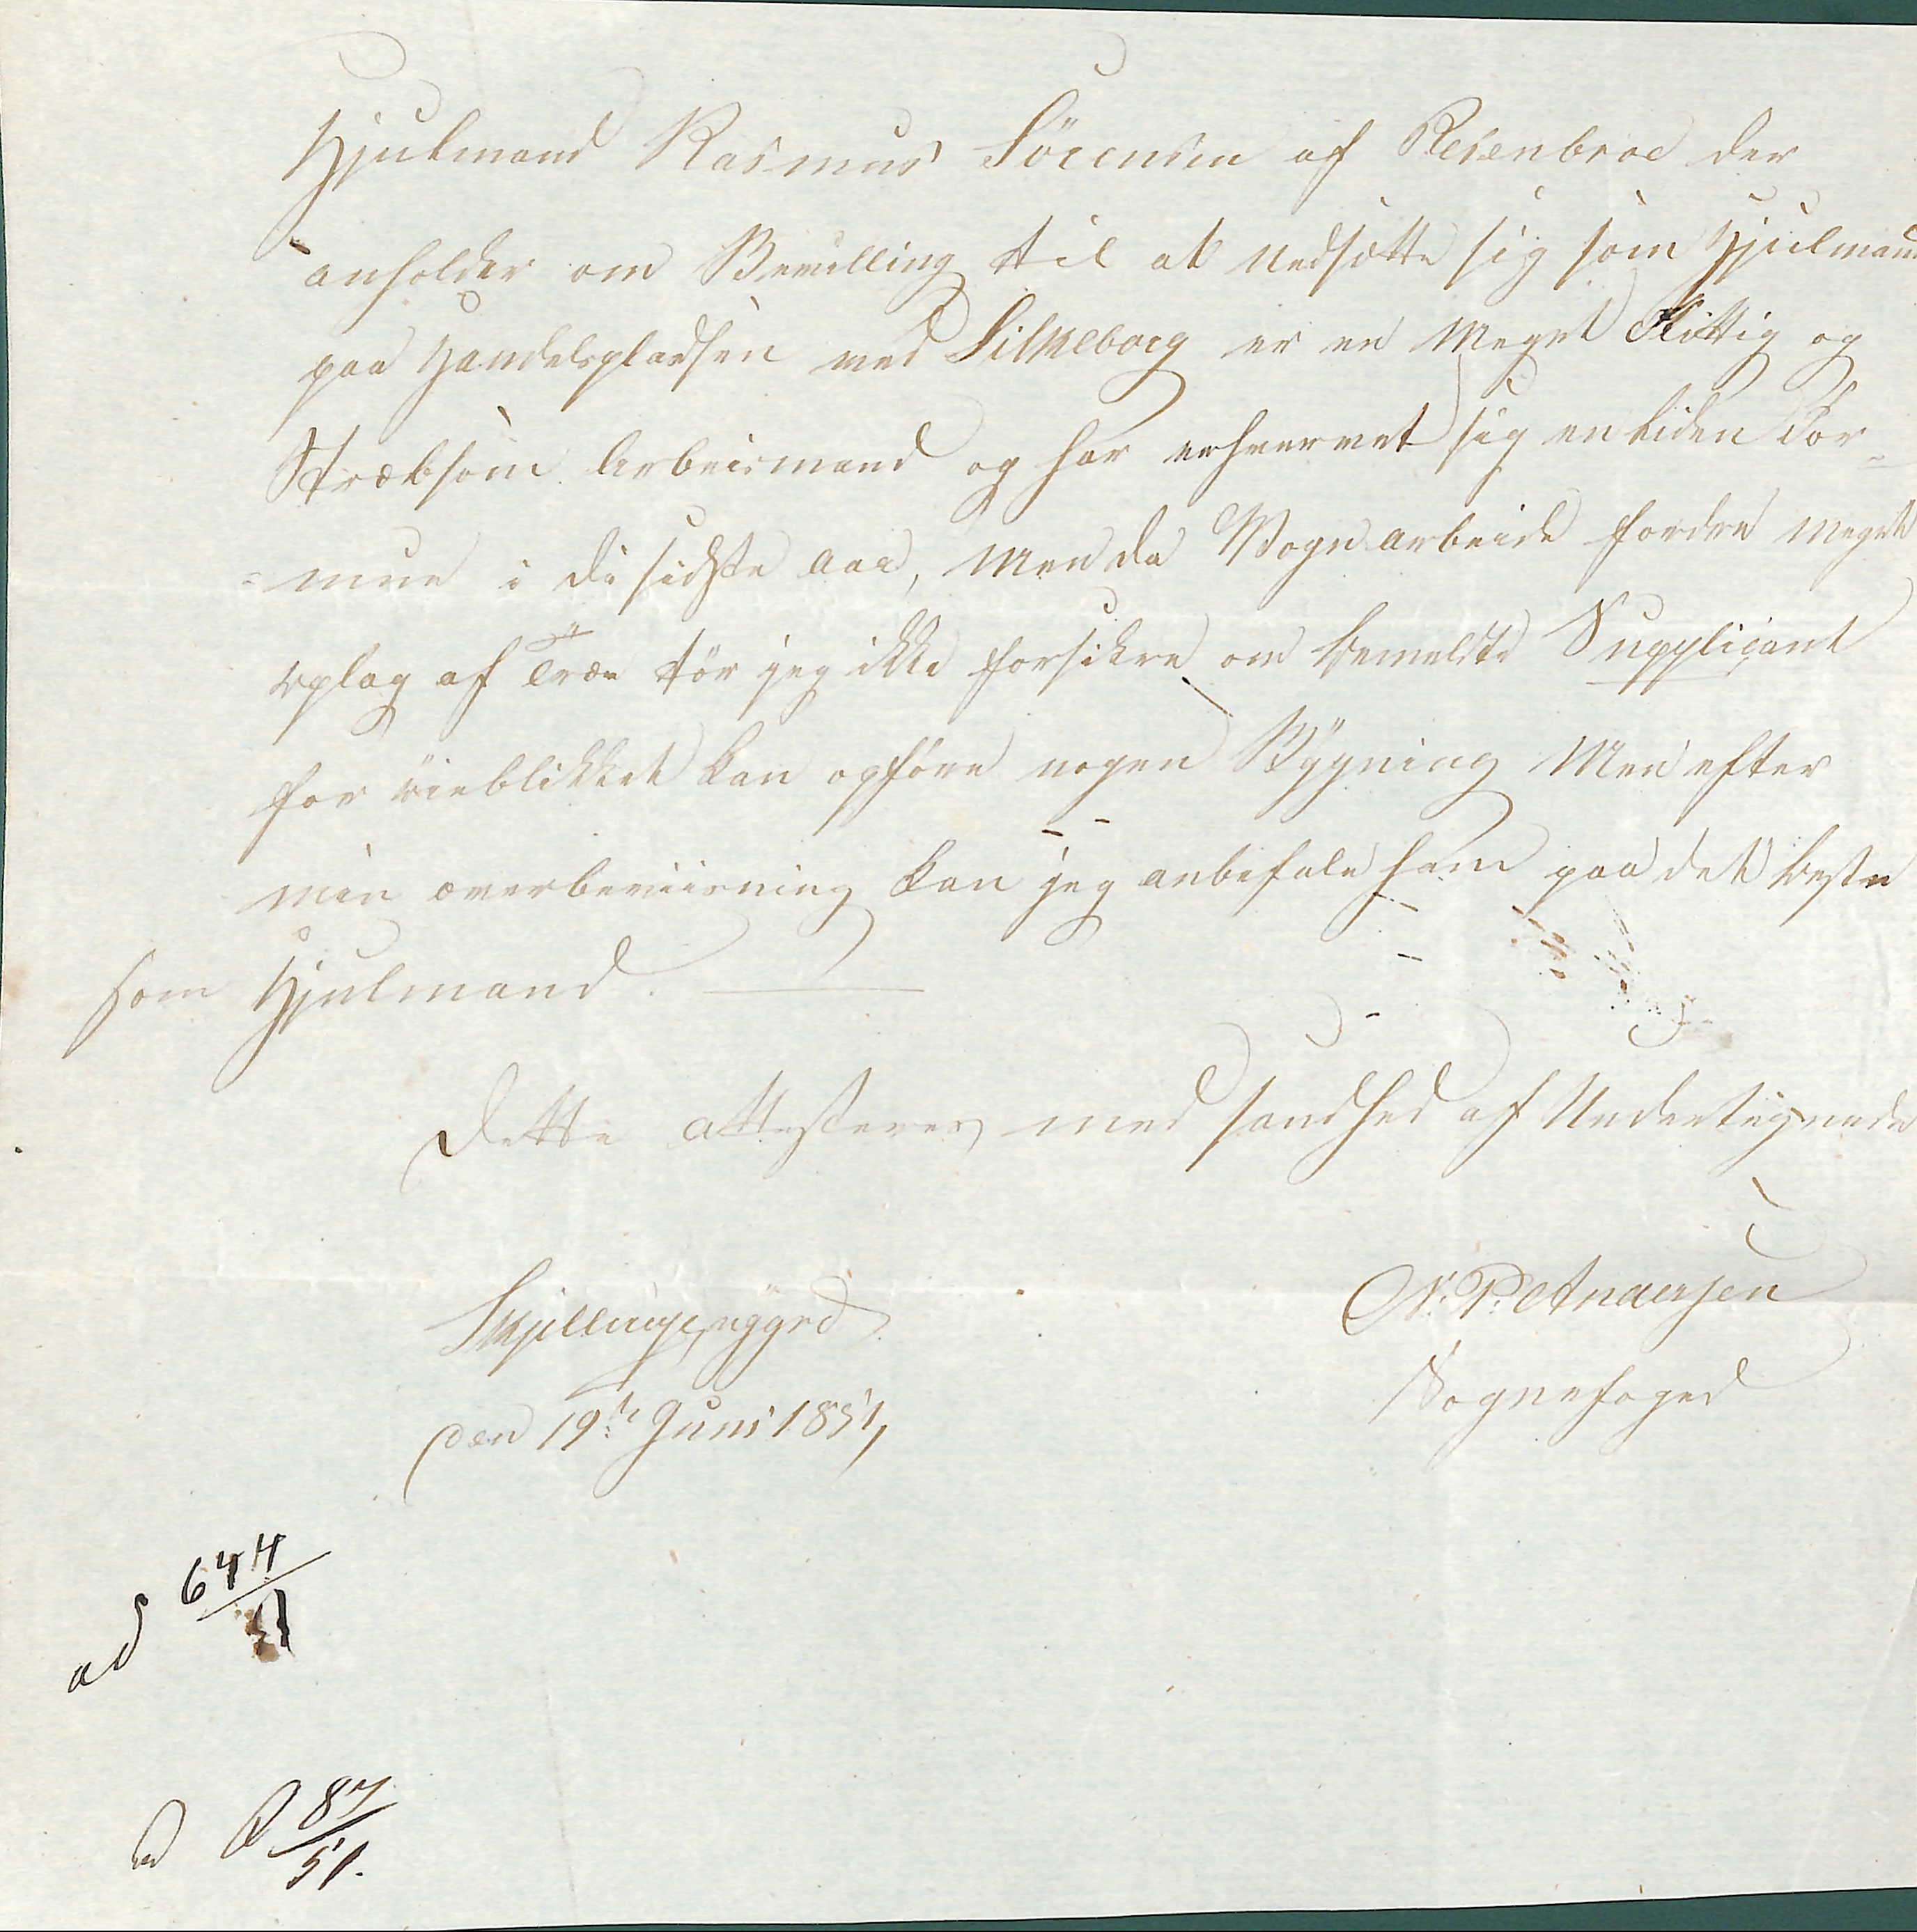 Hjulmand Rasmus Sörensen af Resenbroe der
anholder om Bevilling til at Nedsætte sig som Hjulmand
paa Handelspladsen ved Silkeborg er en Meget Flittig og
Stræbsom Arbeismand og har erhvervet sig en liden For=
=mue i de sidste Aar, Men da Vognarbeide fordre Meget
oplag af Træe tör jeg ikke forsikre om bemeldte Supplicant
for øieblikket kan opføre nogen Bÿgning Men efter
min overbeviisning kan jeg anbefale ham paa det beste
som Hjulmand.
Dette attesteres med sandhed af Undertegnede
N: P: Andersen
den 19de Juni 1851,
Sognefoged
ad 644
87
51.